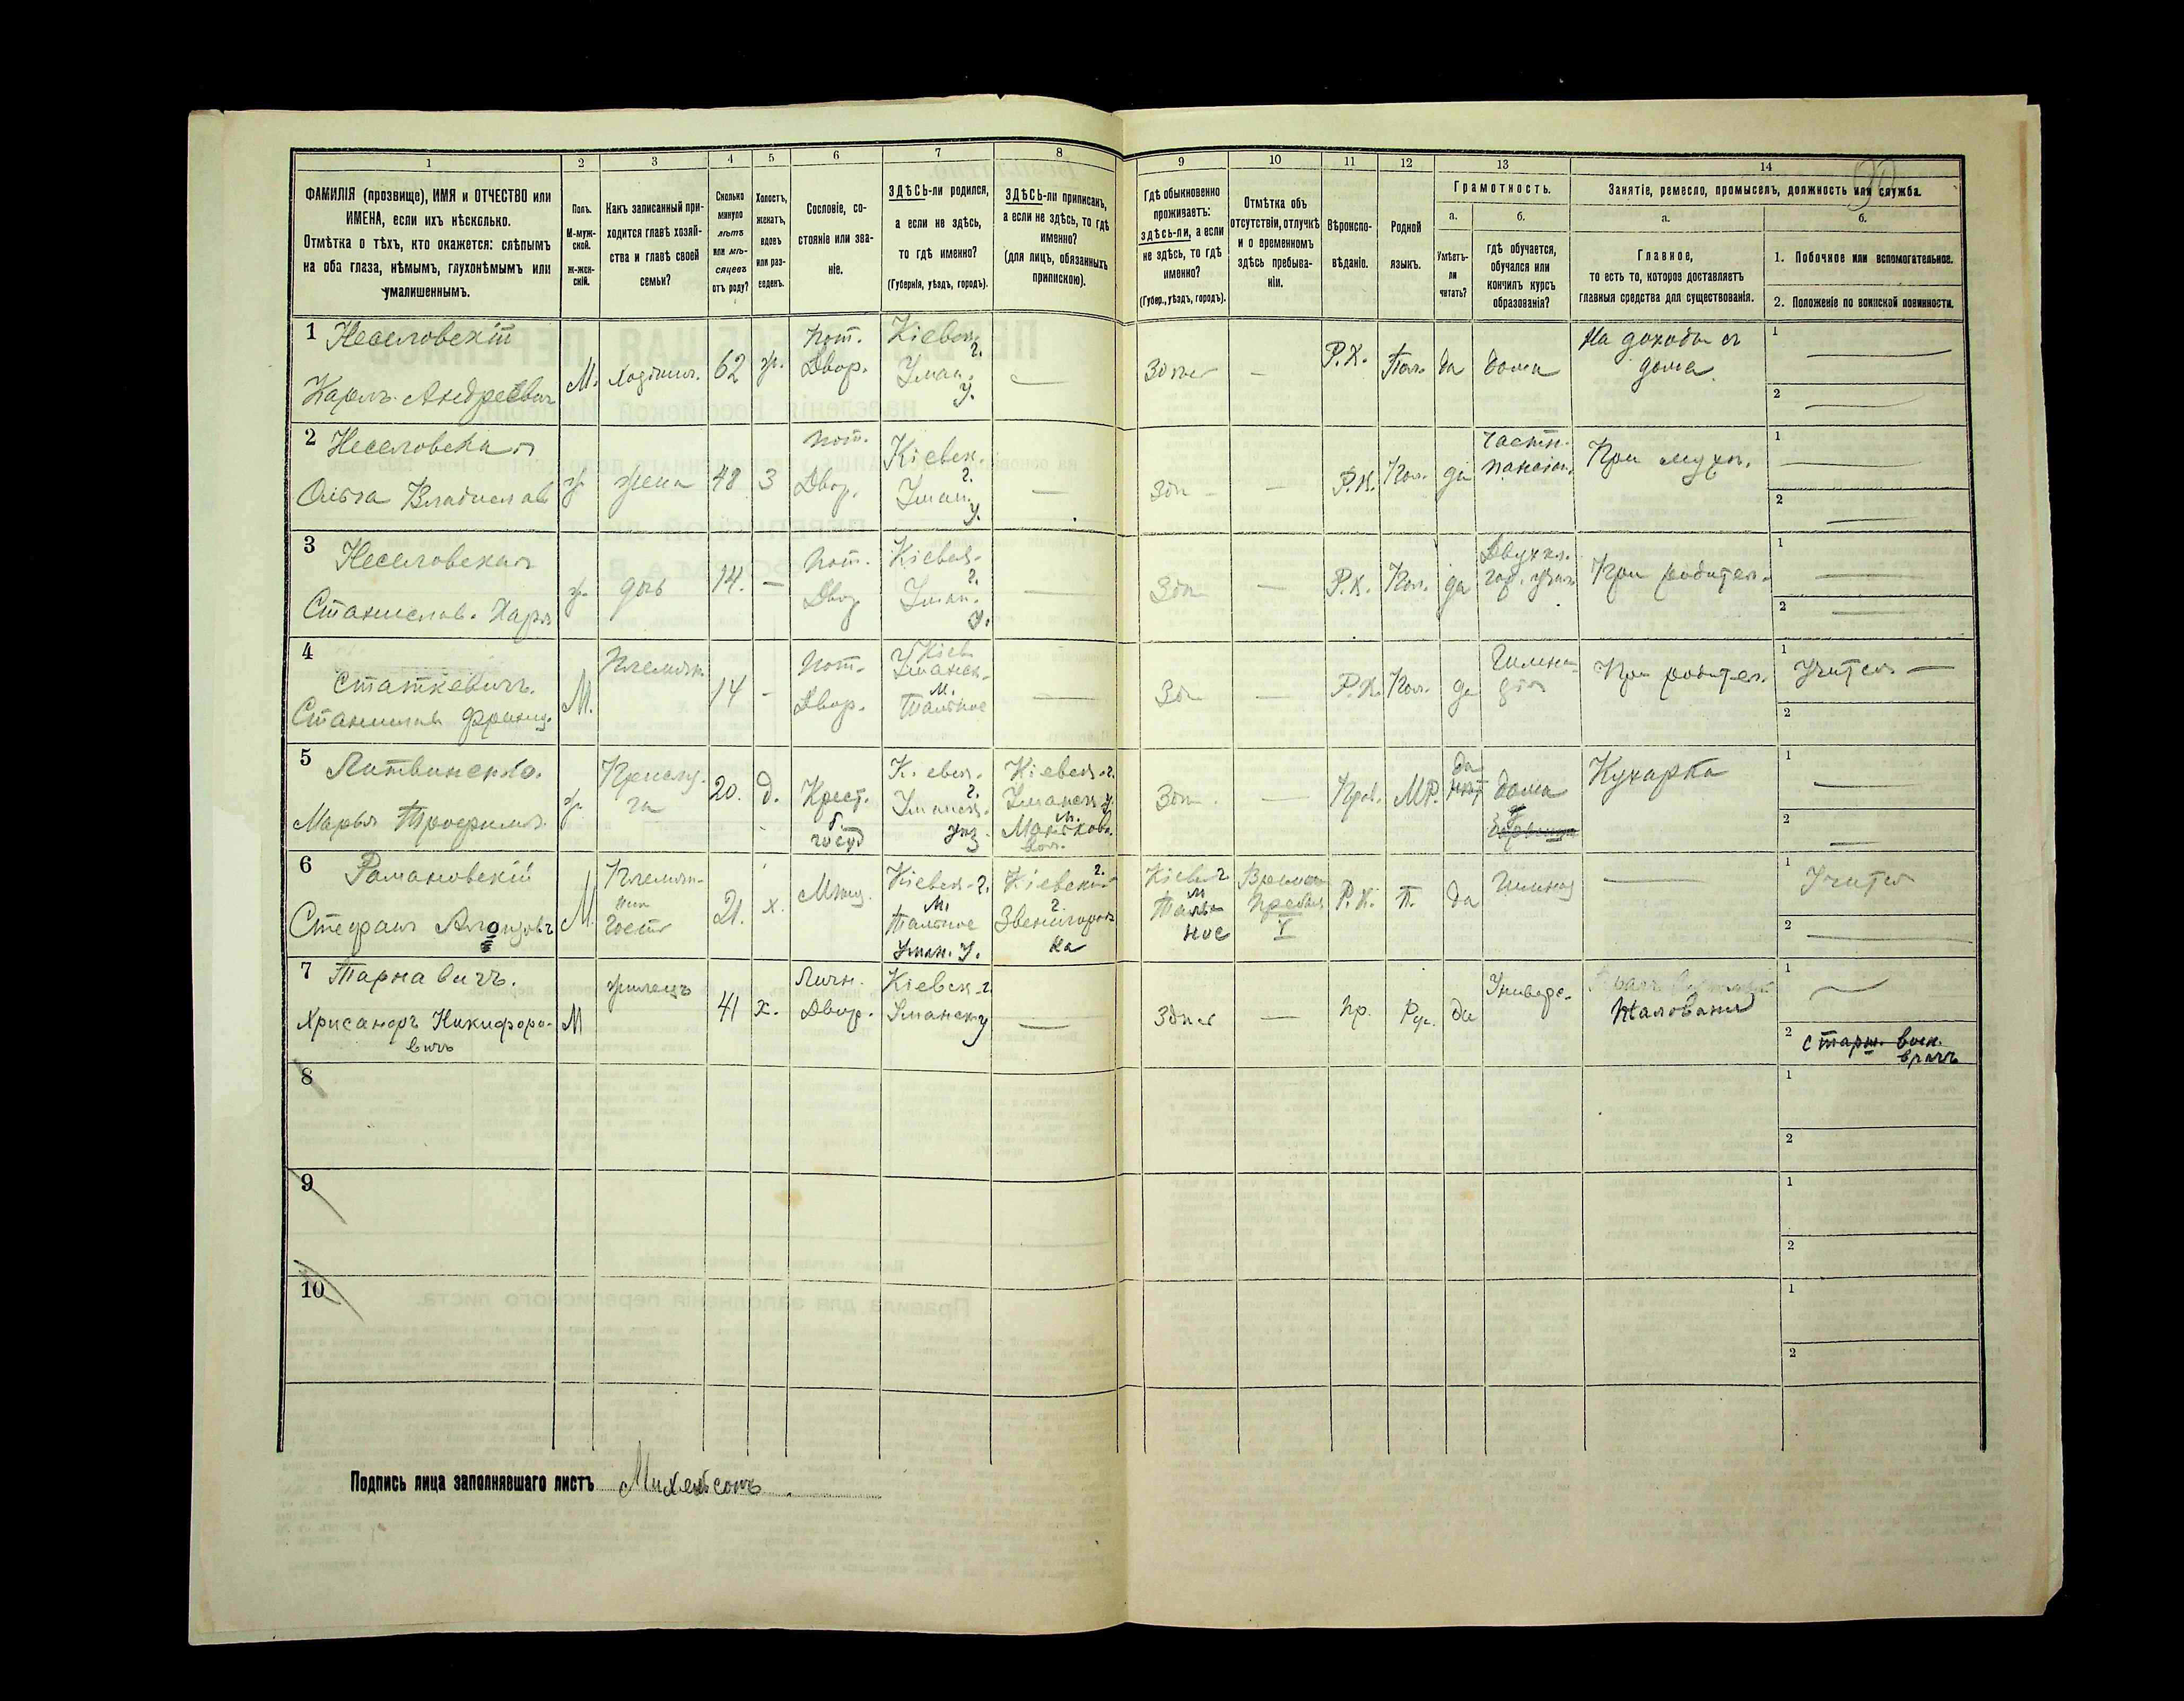 1 2 3 4 5 6 7 8 9 10 11 12 13 14
ФАМИЛІЯ (прозвище), ИМЯ и ОТЧЕСТВО или
ИМЕНА, если ихъ нѣсколько.
Отмѣтка о тѣхъ, кто окажется: слѣпымъ
на оба глаза, нѣмымъ, глухонѣмымъ или
умалишеннымъ.
Полъ.
М-муж-
ской.
ж-жен-
скій.
Какъ записанный при-
ходится главѣ хозяй-
ства и главѣ своей
семьи?
Сколько
минуло
лѣтъ
или мѣ-
сяцевъ
отъ роду?
Холостъ,
женатъ,
вдовъ
или раз-
веденъ.
Сословіе, со-
стояніе или зва-
ніе.
ЗДѢСЬ-ли родился,
а если не здѣсь,
то гдѣ именно?
(Губернія, уѣздъ, городъ).
ЗДѢСЬ-ли приписанъ,
а если не здѣсь, то гдѣ
именно?
(для лицъ, обязанныхъ
припискою).
Гдѣ обыкновенно
проживаетъ:
здѣсь-ли, а если
не здѣсь, то гдѣ
именно?
(Губер., уѣздъ, городъ).
Отмѣтка объ
отсутствіи, отлучкѣ
и о временномъ
здѣсь пребыва-
ніи.
Вѣроиспо-
вѣданіе.
Родной
языкъ.
Грамотность.
а.
Умѣетъ-
ли
читать?
б.
гдѣ обучается,
обучался или
кончилъ курсъ
образованія?
Занятіе, ремесло, промыселъ, должность или служба.
а.
Главное,
то есть то, которое доставляетъ
главныя средства для существованія.
б.
1. Побочное или вспомогательное.
2. Положеніе по воинской повинности.
1 Неселовскій
Карлъ Андреевич
М. 62 ж.
Пот.
Двор.
Кіевск.
г.
Уман.
у.
—
Здѣсь
—
Р.К.
Пол.
да
дома
На доходы съ
дома
1 —
2 —
2 Неселовская
Ольга Владислав
ж
жена
48
З
Пот.
Двор.
Кіевск.
г.
Уман.
у.
—
Зд
—
Р.К.
Пол.
да
Частн.
пансіон.
При муж.
1 —
2 —
3 Неселовская
Станислав. Карл
ж.
дочь
14.
—
Пот.
Двор
Кіевск.
г.
Уман.
у.
—
Зд
—
Р.К.
Пол.
да
Двухкл.
гор. учил
При родител.
1 —
2 —
4
Статкевичъ.
Станислав Франц.
М.
Племян.
14
-
Пот.
Двор.
Кіев
Уманск.
м.
Тальное
—
Зд
—
Р.К.
Пол.
да
Гимна-
зія
При родител.
1 —
2
5
Литвиненко.
Марья Трофимов.
ж.
Прислу-
га
20.
д.
Крест.
б.
госуд
Кіевск.
г.
Уманск.
уѣз.
Кіевск. г.
Уманск у.
Зд
—
Прав.
МР.
да
дома
Кухарка
1 —
2 —
6 Романовскій
Стефан
М
Племян-
ник
гость
21.
х.
Мѣщ.
Кіевск. г.
м.
Тальное
Уман. у.
Кіевской
г.
Звенигород
ка
Кіев г
м
Таль-
ное
Времен
пребыв
Р.К.
П.
да
Гимназ
—
1
2 —
7 Тарнавичъ.
Хрисанфъ Никифоро-
вичъ
М
жилецъ
41
х.
Личн.
Двор.
Кіевск. г.
Уманск у
—
Здѣсь
—
Пр.
Рус.
да
Универс.
Жалованье
1 —
2 старш. воен.
врачъ
8
1
2
9
1
2
10
1
2
Подпись лица заполнявшаго листъ Михельсонъ